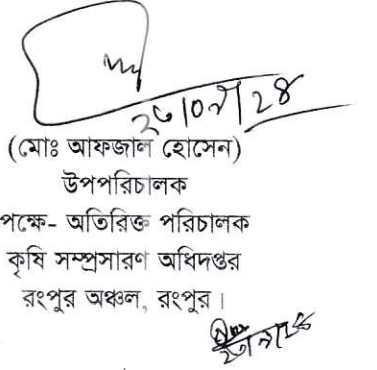 (মোঃ আফজাল হোসেন)
উপপরিচালক
পক্ষে- অতিরিক্ত পরিচালক
কৃষি সম্প্রসারণ অধিদপ্তর
রংপুর অঞ্চল, রংপুর।